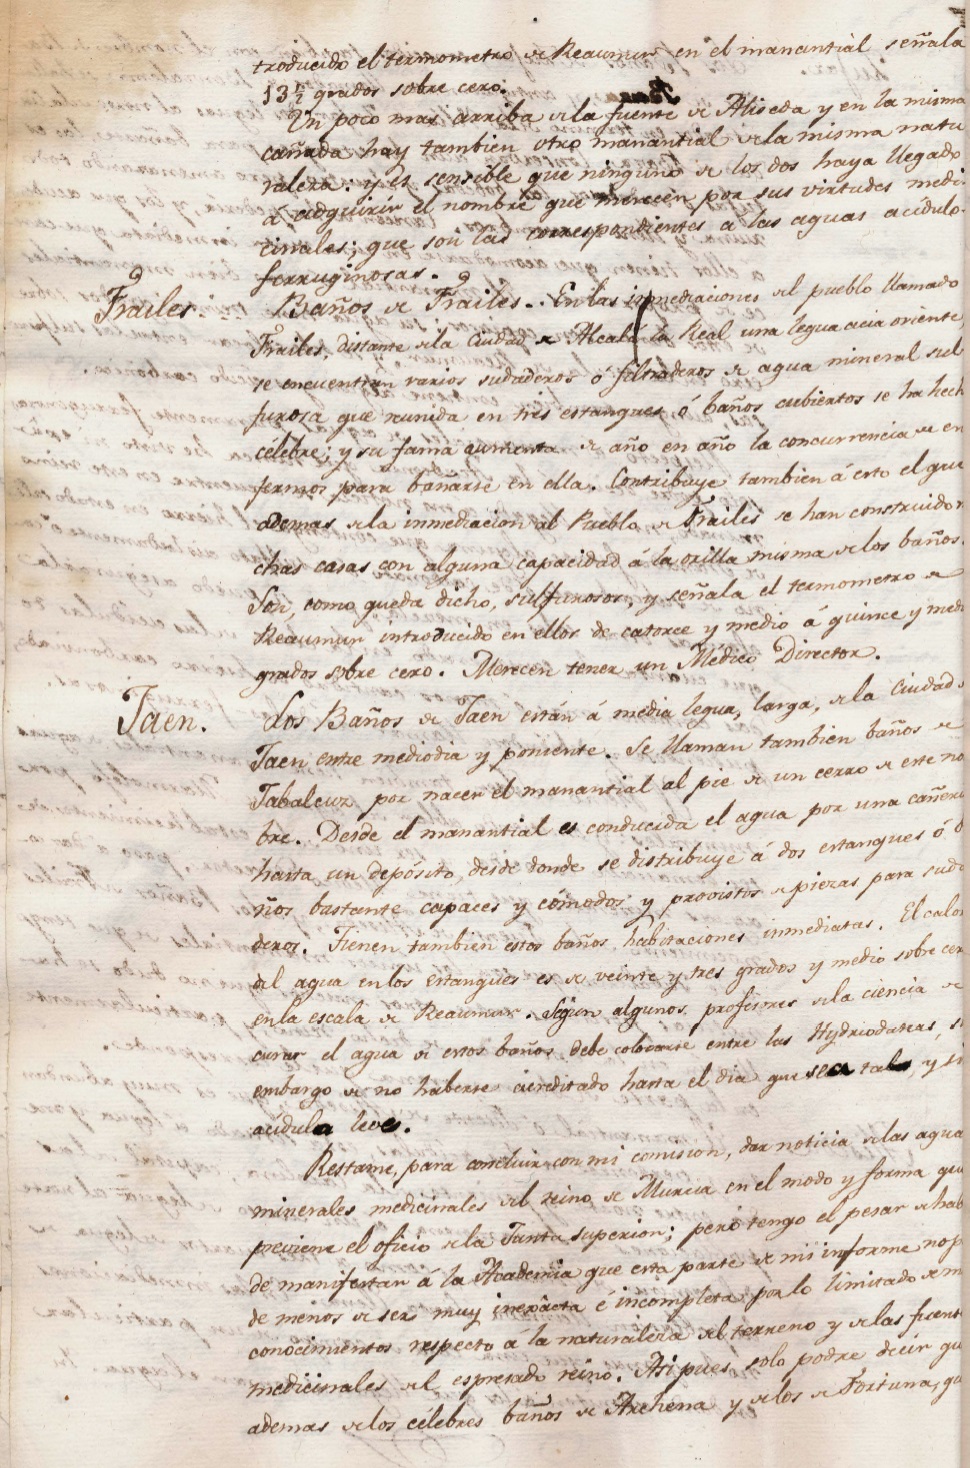 troducido el termometro de Reaumur en el manantial señala
13 1/2 grados sobre cero.
Un poco mas arriba de la fuente de Aliseda y en la misma
cañada hay tambien otro manantial de la misma natu
raleza: y es sensible que ninguno de los dos haya llegado
á adquirir el nombre que merecen por sus virtudes medi
cinales; que son las correspondientes a las aguas acídulo-
ferruginosas.
Frailes.
Baños de Frailes. En las inmediaciones del pueblo llamado
Frailes, distante de la Ciudad de Alcalá la Real una legua acia oriente,
se encuentran varios sudaderos ó filtraderos de agua mineral sul
furosa que reunida en tres estanques ó baños cubiertos se ha hech
célebre; y su fama aumenta de año en año la concurrencia de en
fermos para bañarse en ella. Contribuye tambien á esto el que
ademas de la inmediacion al Pueblo de Frailes se han construido
chas casas con alguna capacidad á la orilla misma de los baños.
Son, como queda dicho, sulfurosos, y señala el termometro de
Reaumur introducido en ellos de catorce y medio á quince y medi
grados sobre cero. Merecen tener un Médico Director.
Jaen.
Los Baños de Jaen están á media legua, larga, de la Ciudad
Jaen entre mediodia y poniente. Se llaman tambien baños de
Jabalcuz por nacer el manantial al pie de un cerro de este no
bre. Desde el manantial es conducida el agua por una cañeria
hasta un depósito, desde donde se distribuye á dos estanques ó b
ños bastante capaces y cómodos y provistos de piezas para suda
deros. Tienen tambien estos baños habitaciones inmediatas. El calor
del agua en los estanques es de veinte y tres grados y medio sobre cer
en la escala de Reaumur. Segun algunos profesores de la ciencia de
curar el agua de estos baños debe colocarse entre las Hydriodatas, s
embargo de no haberse acreditado hasta el dia que sea tal, y si
acídula leve.
Restame, para concluir con mi comision, dar noticia de las agua
minerales medicinales del reino de Murcia en el modo y forma que
previene el oficio de la Junta superior; pero tengo el pesar de hab
de manifestar á la Academia que esta parte de mi informe no p
de menos de ser muy inexâcta é incompleta por lo limitado de m
conocimientos respecto á la naturaleza del terreno y de las fuent
medicinales del espresado reino. Asi pues solo podre decir qu
ademas de los célebres baños de Archena y de los de Fortuna, qu